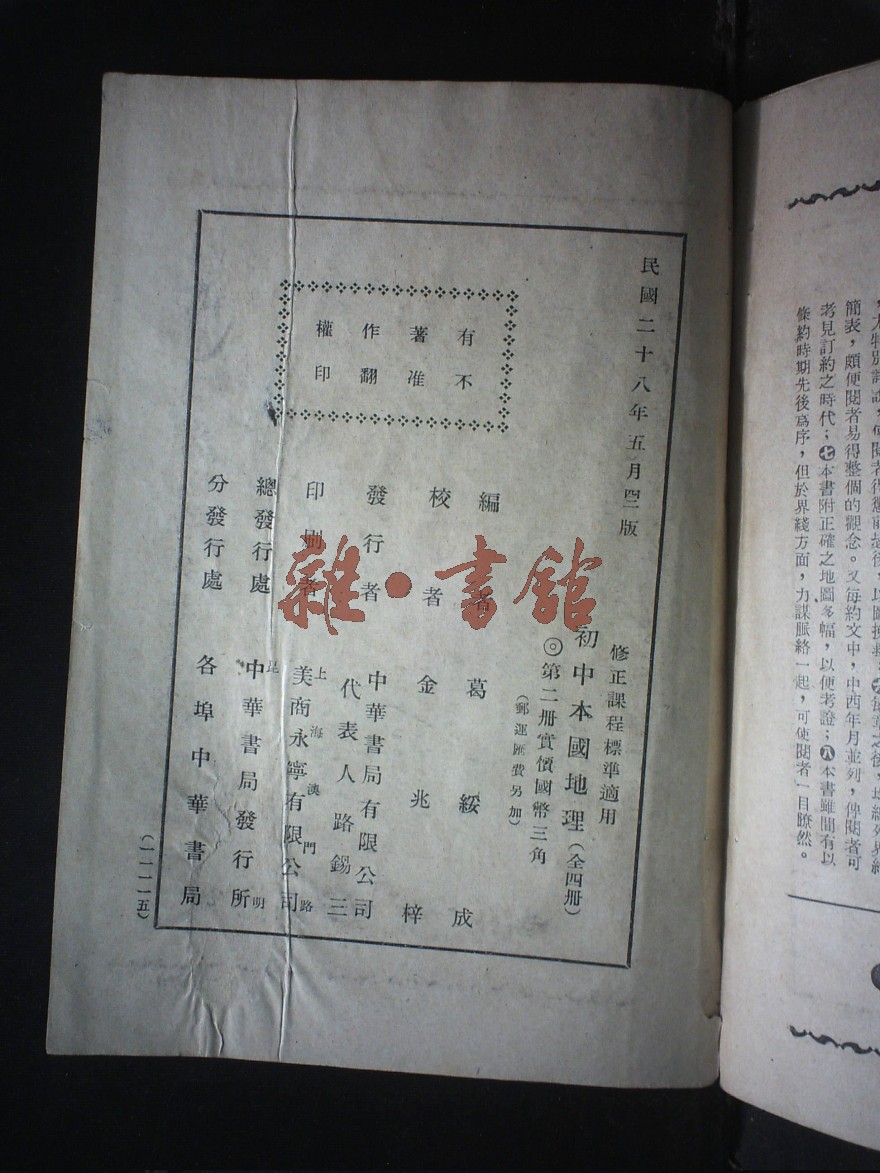 條約時期先後爲序，但於界綫方面，力謀脈絡一起，可使閱者一目瞭然。
考見訂約之時代；㊆本書附正確之地圖多幅，以便考證；㊇本書雖間有以
簡表，頗便閱者易得整個的觀念。又每約文中，中西年月並列，俾閱者可
民國二十八年五月四版
修正課程標準適用
初中本國地理（全四册）
◎第二册實價國幣三角
（郵運匯費另加）
有著作權
不准翻印
編者 葛綏成
校者 金兆梓
發行者 中華書局有限公司
代表人路錫三
印刷者 上海澳門路
美商永寧有限公司
總發行處 昆明
中華書局發行所
分發行處 各埠中華書局
（一一一一五）
雜·書館